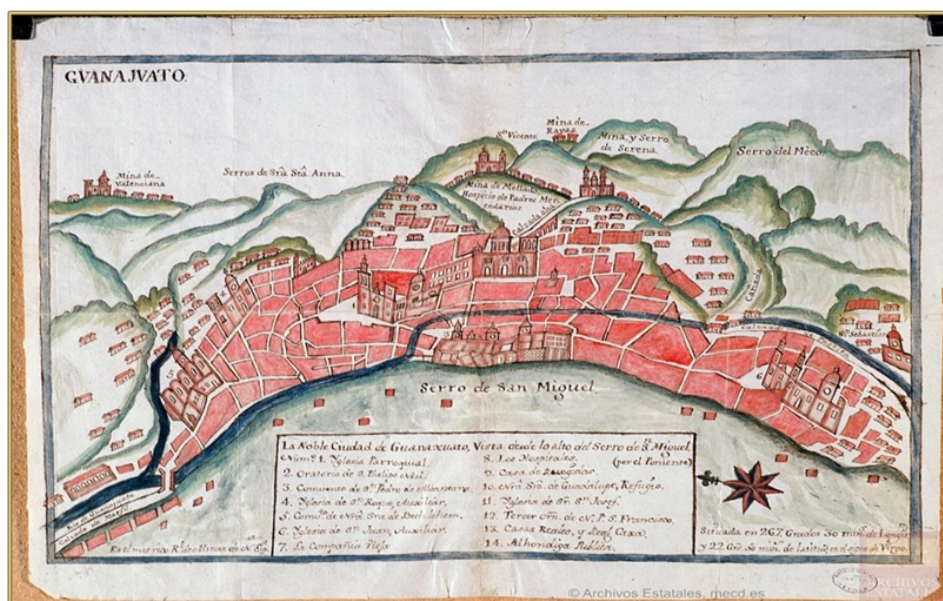 GVANAJVATO.
Mina de
Valenciana
Serros de Srâ Stâ Anna.
Sn Vicente
Mina de
Rayas
Mina y Serro
de Serena.
Serro del Meco.
Mina de Mellado,
Hospicio de Padres Mer
cedarios.
Calzada
Cañada
Calzada
Sn Sebastian
Serro de San Miguel.
Rio de Guanajuato
Calzada de Marfil
La Noble Ciudad de Guanaxuato, Vista desde lo alto del Serro de Sn Miguel
(por el Poniente)
Num.º 1. Yglesia Parroquial.
2. Oratorio de S. Phelipe Neri.
3. Convento de Sn. Pedro de Alcantara.
4. Yglesia de Sn. Roque, Auxiliar.
5. Comto. de Nrâ. Srâ de Bethlehem.
6. Yglesia de Sn. Juan, Auxiliar.
7. La Compañia Vieja
8. Los Hospitales.
9. Casa de
10. Nrâ. Srâ. de Guadalupe, Refugio.
11. Yglesia de Sr. Sn. Josef.
12. Tercer Orn. de N. P. S. Francisco
13. Casas Reales, y Real Caxa,
14. Alhondiga Publica.
Situada en 267. Grados 30 mins. de Longit
y 22 Grs. 50 mins. de latitud en el signo de Virgo.
© Archivos Estatales, mecd.es
ARCHIVOS
ESTATALES